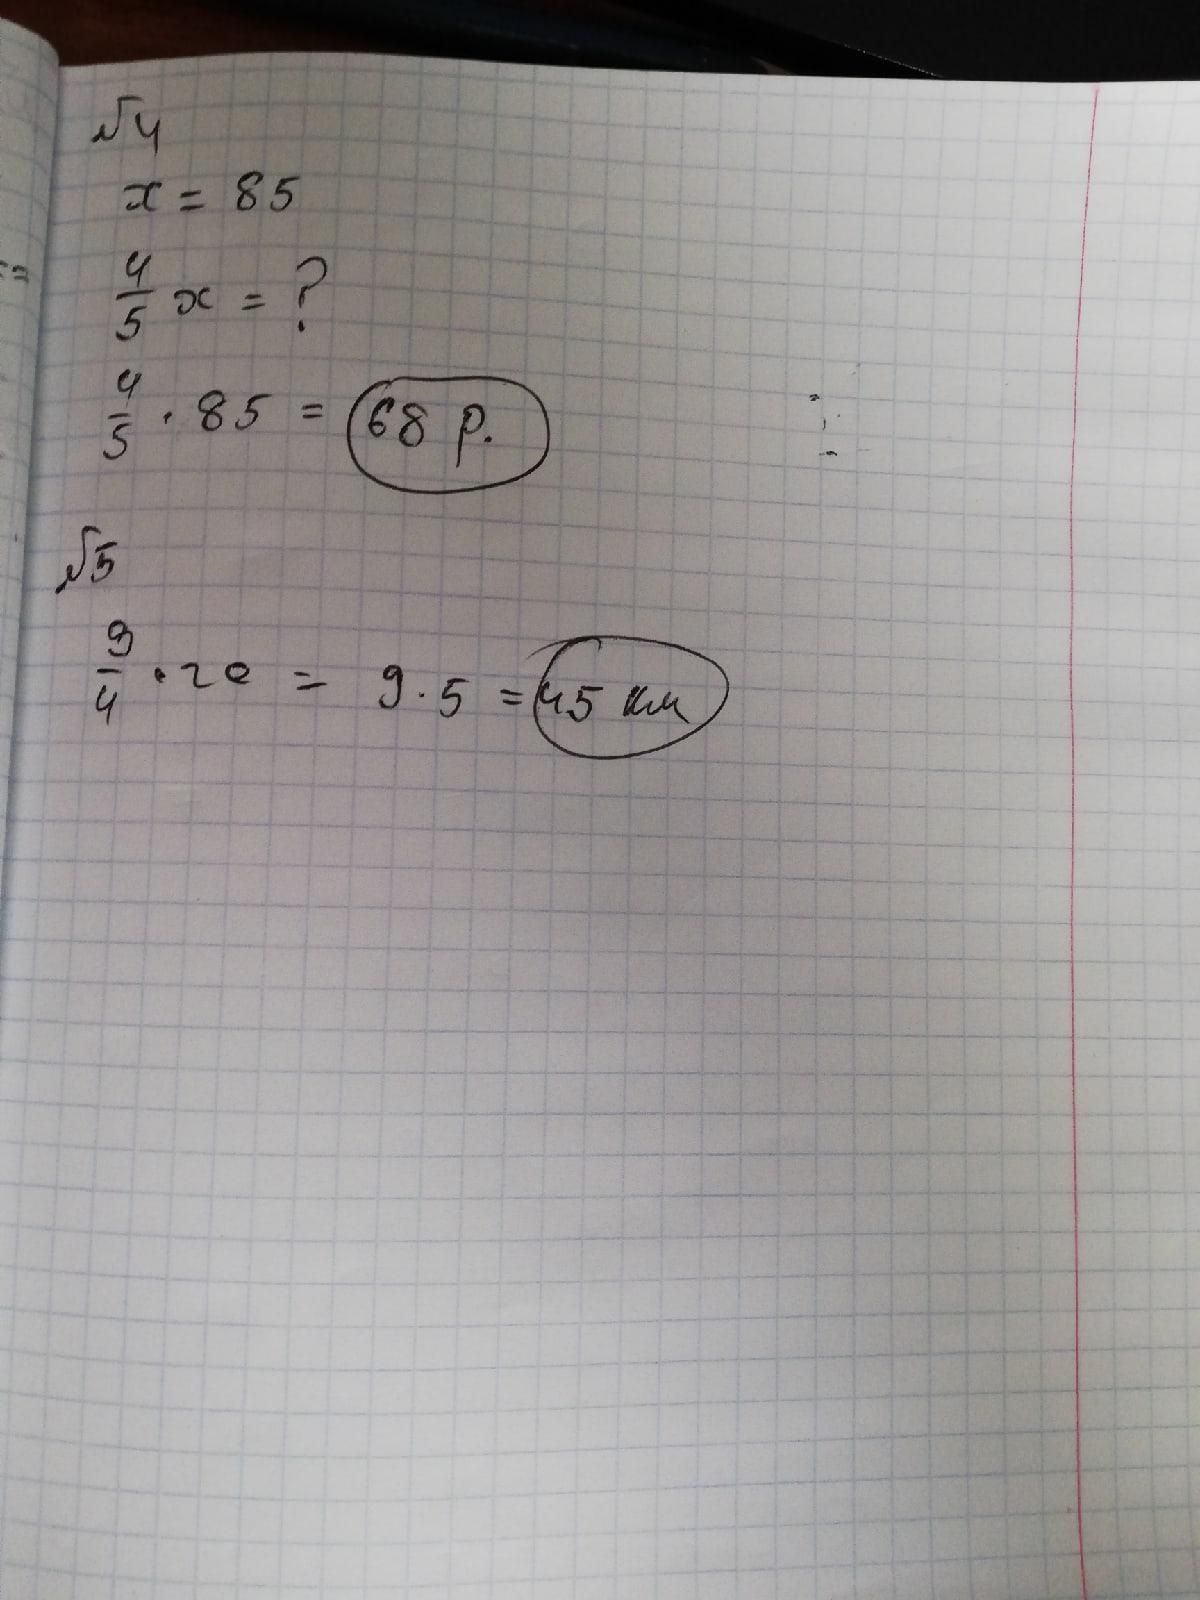 №4
x = 85
4/5 x = ?
4/5 · 85 = 68 р.
№5
9/4 · 20 = 9 · 5 = 45 км